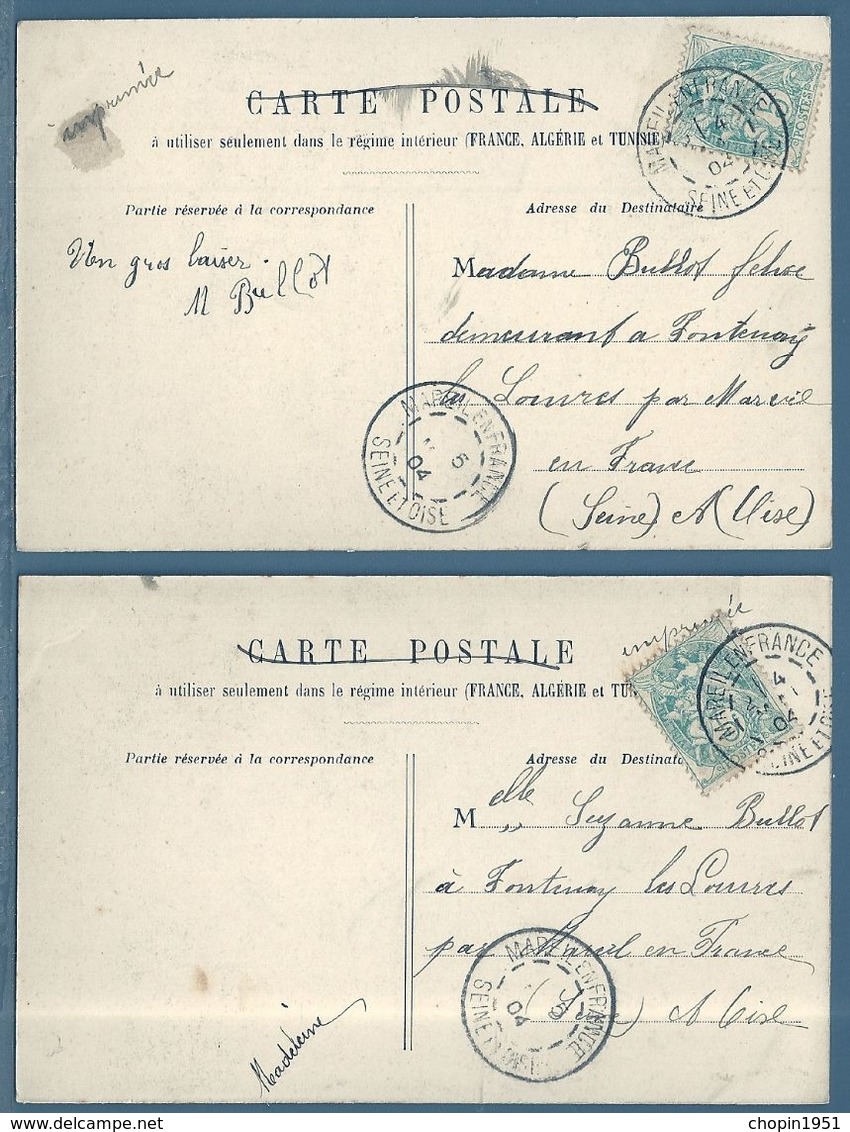 imprimée
CARTE POSTALE
à utiliser seulement dans le régime intérieur (FRANCE, ALGÉRIE et TUNISIE)
MAREIL-EN-FRANCE
4
04
SEINE ET OISE
POSTES
Partie réservée à la correspondance
Adresse du Destinataire
Un gros baiser.
M Bullot
Madame Bullot
demeurant a Fontenay
les Louvres par Mareil
en France
(Seine) et (Oise)
MAREIL-EN-FRANCE
5
04
SEINE ET OISE
imprimée
CARTE POSTALE
à utiliser seulement dans le régime intérieur (FRANCE, ALGÉRIE et TUN
MAREIL-EN-FRANCE
4
04
SEINE ET OISE
Partie réservée à la correspondance
Adresse du Destinata
Melle Suzanne Bullot
à Fontenay les Louvres
par Mareil en France
(Seine) et Oise
MAREIL-EN-FRANCE
5
04
SEINE ET OISE
Madeleine
chopin1951